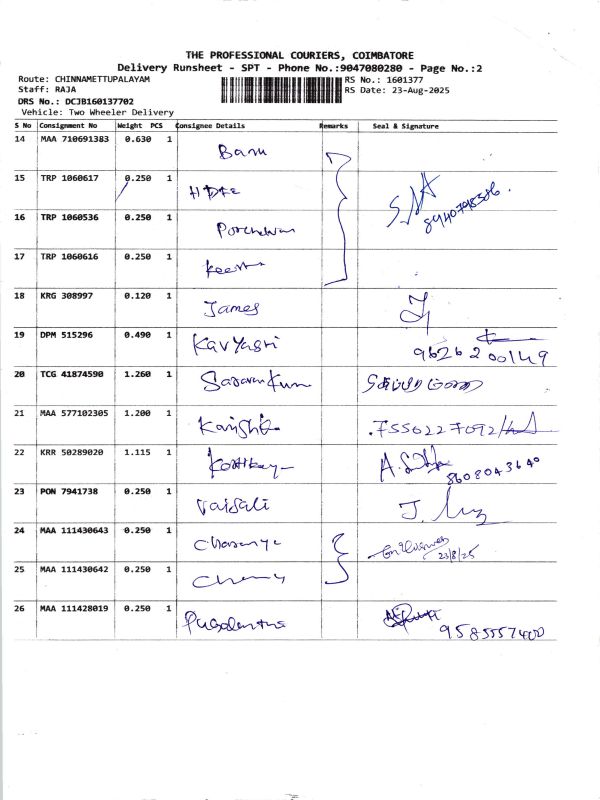 THE PROFESSIONAL COURIERS, COIMBATORE
Delivery Runsheet - SPT - Phone No.:9047080280 - Page No.:2
Route: CHINNAMETTUPALAYAM RS No.: 1601377
Staff: RAJA RS Date: 23-Aug-2025
DRS No.: DCJB160137702
Vehicle: Two Wheeler Delivery
S No Consignment No Weight PCS Consignee Details Remarks Seal & Signature
14 MAA 710691383 0.630 1 Banu
15 TRP 1060617 0.250 1 HDFC
8940798386.
16 TRP 1060536 0.250 1
17 TRP 1060616 0.250 1
18 KRG 308997 0.120 1 James
19 DPM 515296 0.490 1 Kavyasri
9626200149
20 TCG 41874590 1.260 1 Saravankum
21 MAA 577102305 1.200 1 Kanishk 7550227092
22 KRR 50289020 1.115 1 Karthikeyan
8608043640
23 PON 7941738 0.250 1 Vaisali
24 MAA 111430643 0.250 1 Charanya
23/8/25
25 MAA 111430642 0.250 1
26 MAA 111428019 0.250 1
9585557400